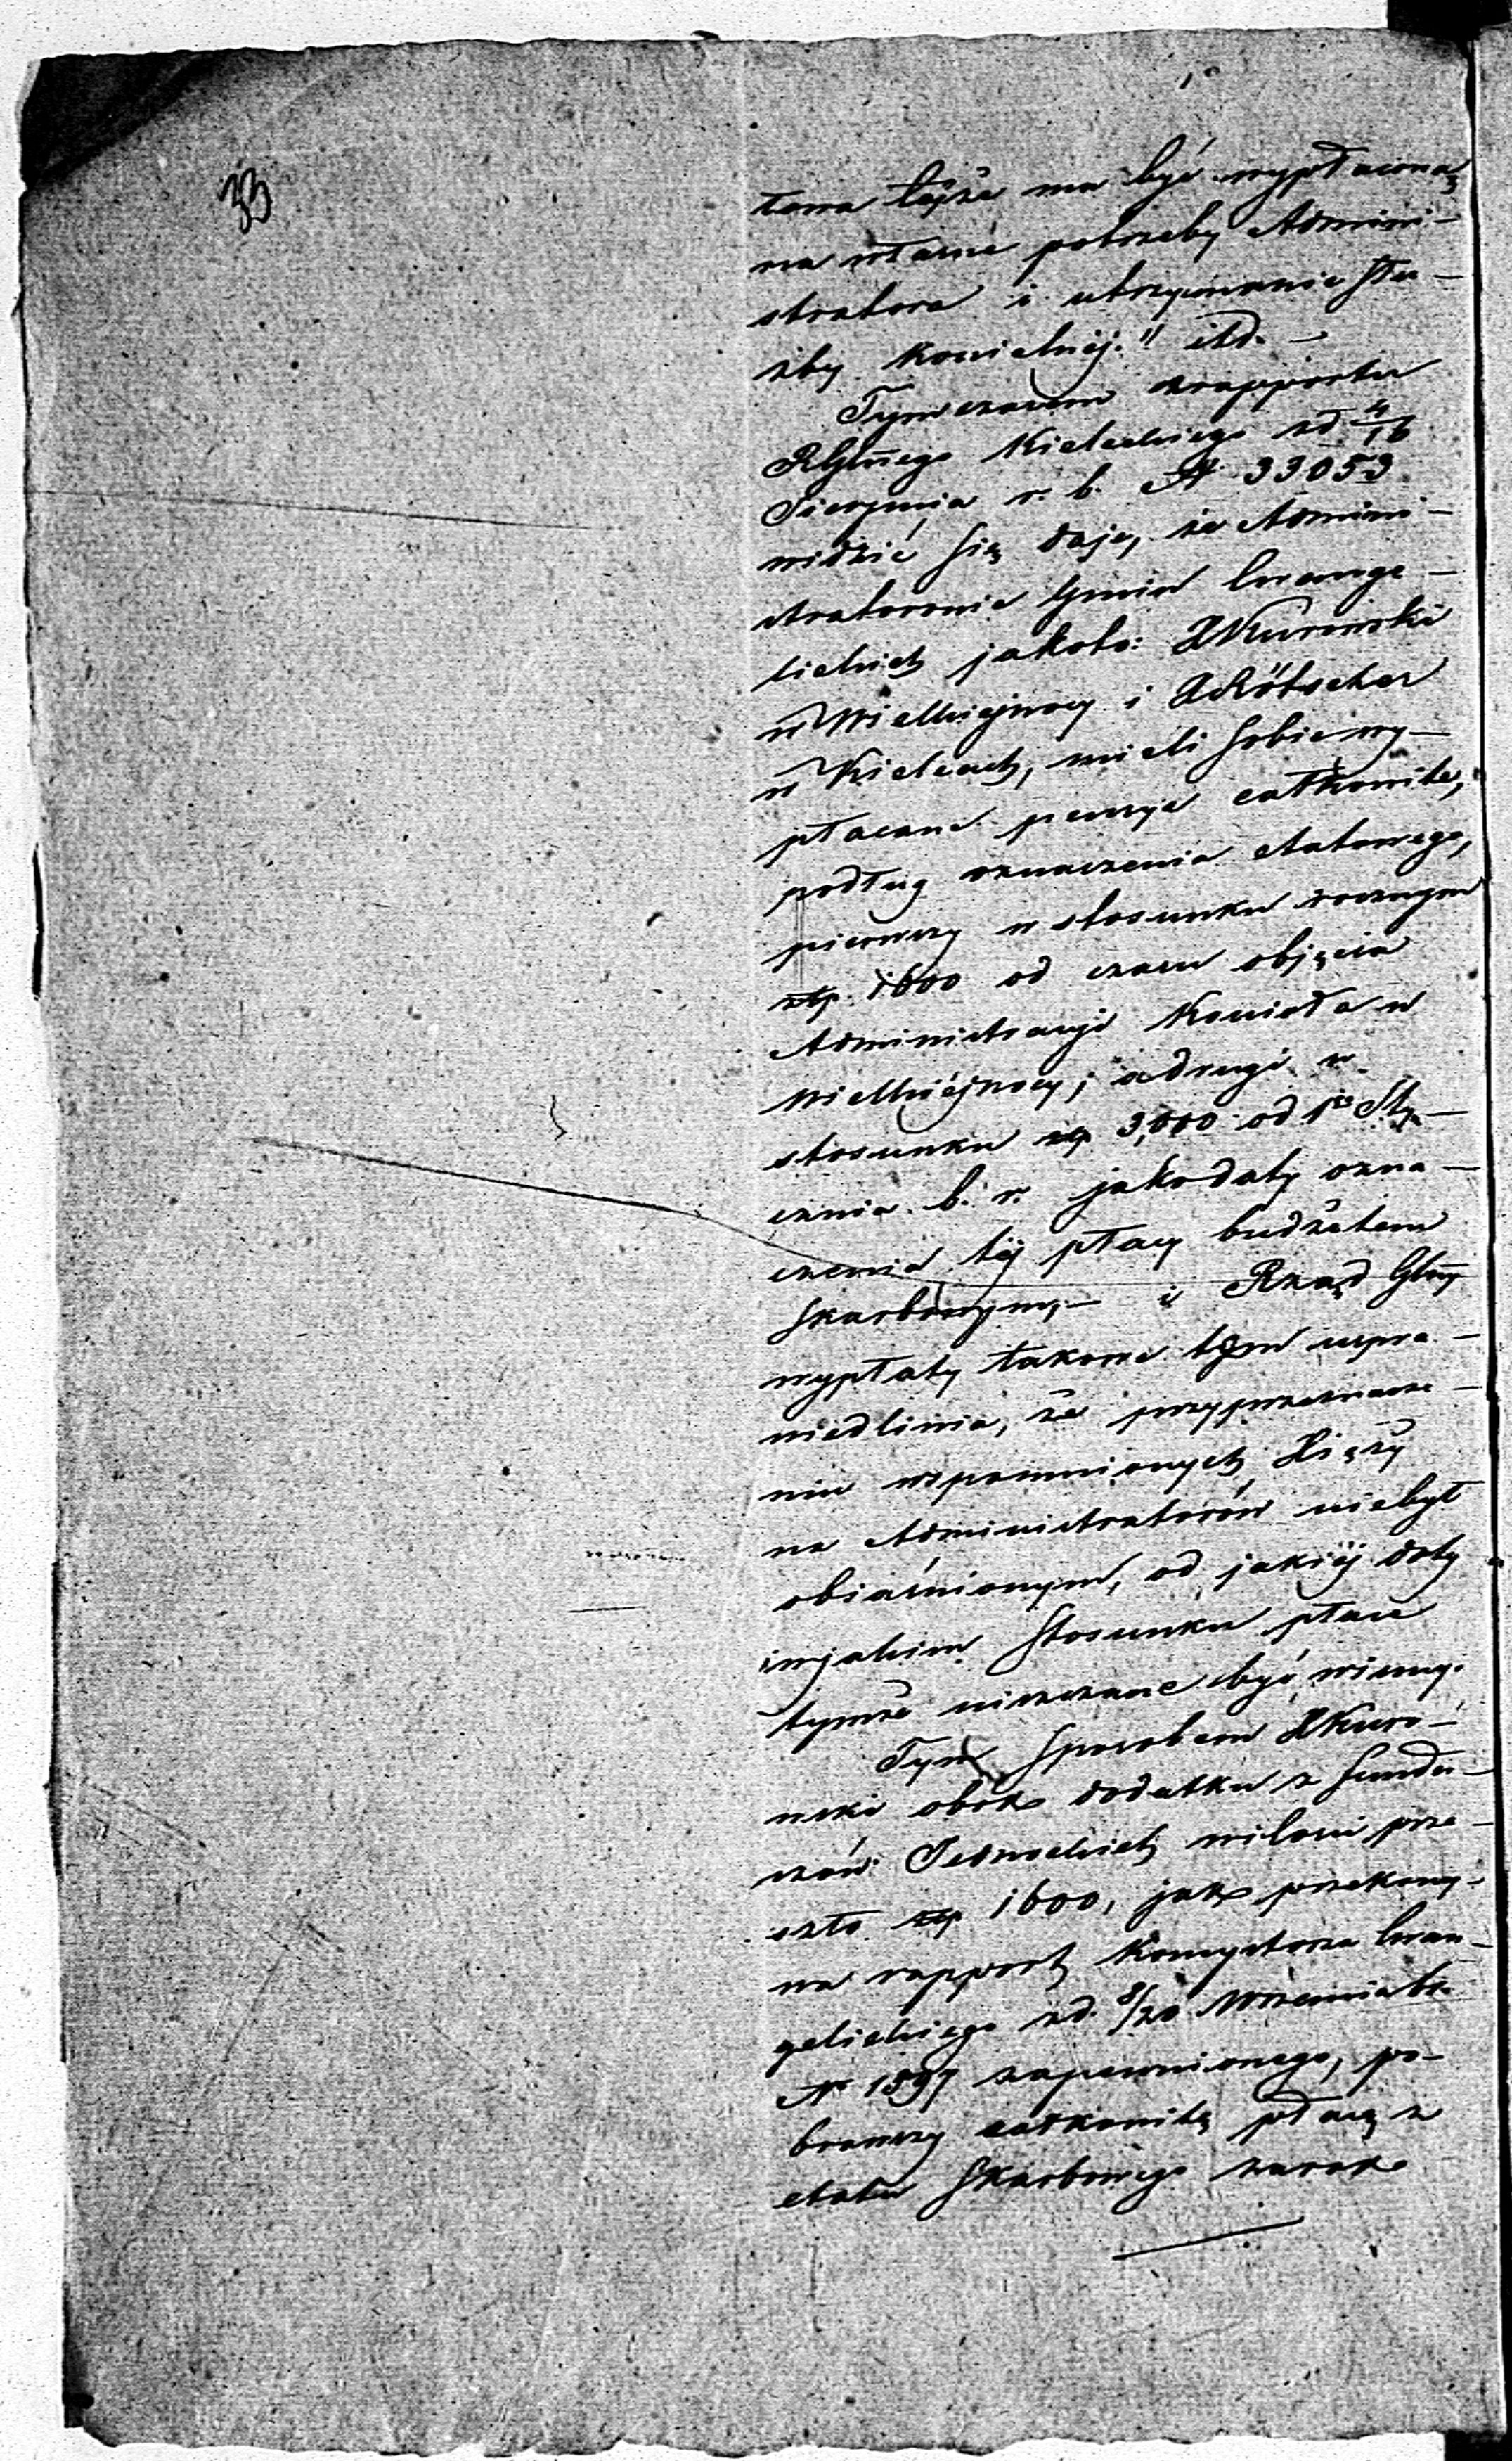 33
towa tejże ma być wypłaconą
na własne potrzeby Admini-
stratora i utrzymanie słu-
żby kościelnej." itd. –
Tymczasem z rapportu
RGłnego Kieleckiego z d. 4/16
Sierpnia r. b. N 33053
widzić się daje, że Admini-
stratorowie Gmin Ewange-
lickich jakoto: X Kurowski
w Wielkiejnocy i X Rötscher
w Kielcach, mieli sobie wy-
płacane pensye całkowite,
podług oznaczenia etatowego,
pierwszy w stosunku rocznym
złp. 1600 od czasu objęcia
Administracyi Kościoła w
Wielkiejnocy; a drugi w
stosunku złp 3,000 od 1go Sty-
cznia b. r. jako daty ozna-
czenia tej płacy budżetem
Skarbowym, – i Rząd Głny
wypłaty takowe tem uspra-
wiedliwia, że przy przeznacze-
niu wspomnionych Xięży
na Administratorów niebył
obiaśnionym, od jakiej daty
i w jakim stosunku płace
tymże uiszczane być winny.
Tym sposobem X Kuro-
wski obok dodatku z fundu-
szów Jednockich w ilości prze-
szło złp 1600, jak przekony-
wa rapport Konsystorza Ewan-
gelickiego z d. 8/20 Września b.r.
N 1897 zapewnionego, po-
brawszy całkowitą płacę z
etatu Skarbowego za rok